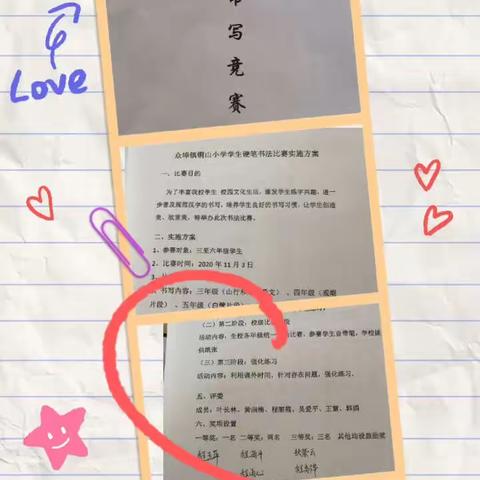 Love
写
竞
赛
众埠镇桐山小学学生硬笔书法比赛实施方案
一、比赛目的
为了丰富我校学生 校园文化生活，激发学生练字兴趣，进一
步普及规范汉字的书写，培养学生良好的书写习惯，让学生创造
美、欣赏美，特举办此次书法比赛。
二、实施方案
1、参赛对象：三至六年级学生
2、比赛时间：2020 年 11 月 3 日
书写内容：三年级（山行
文）、四年级（观潮
片段）、五年级（白鹭片段）
（二）第二阶段：校级比
段
活动内容：全校各年级统一
比赛，参赛学生自带笔，学校提
供纸张
（三）第三阶段：强化练习
活动内容：利用课外时间，针对存在问题，强化练习。
五、评委
成员：叶长林、黄
梅、程丽霞、吴爱平、王
、韩娟
六、奖项设置
一等奖：一名 二等奖：两名 三等奖：三名 其他均设鼓励奖